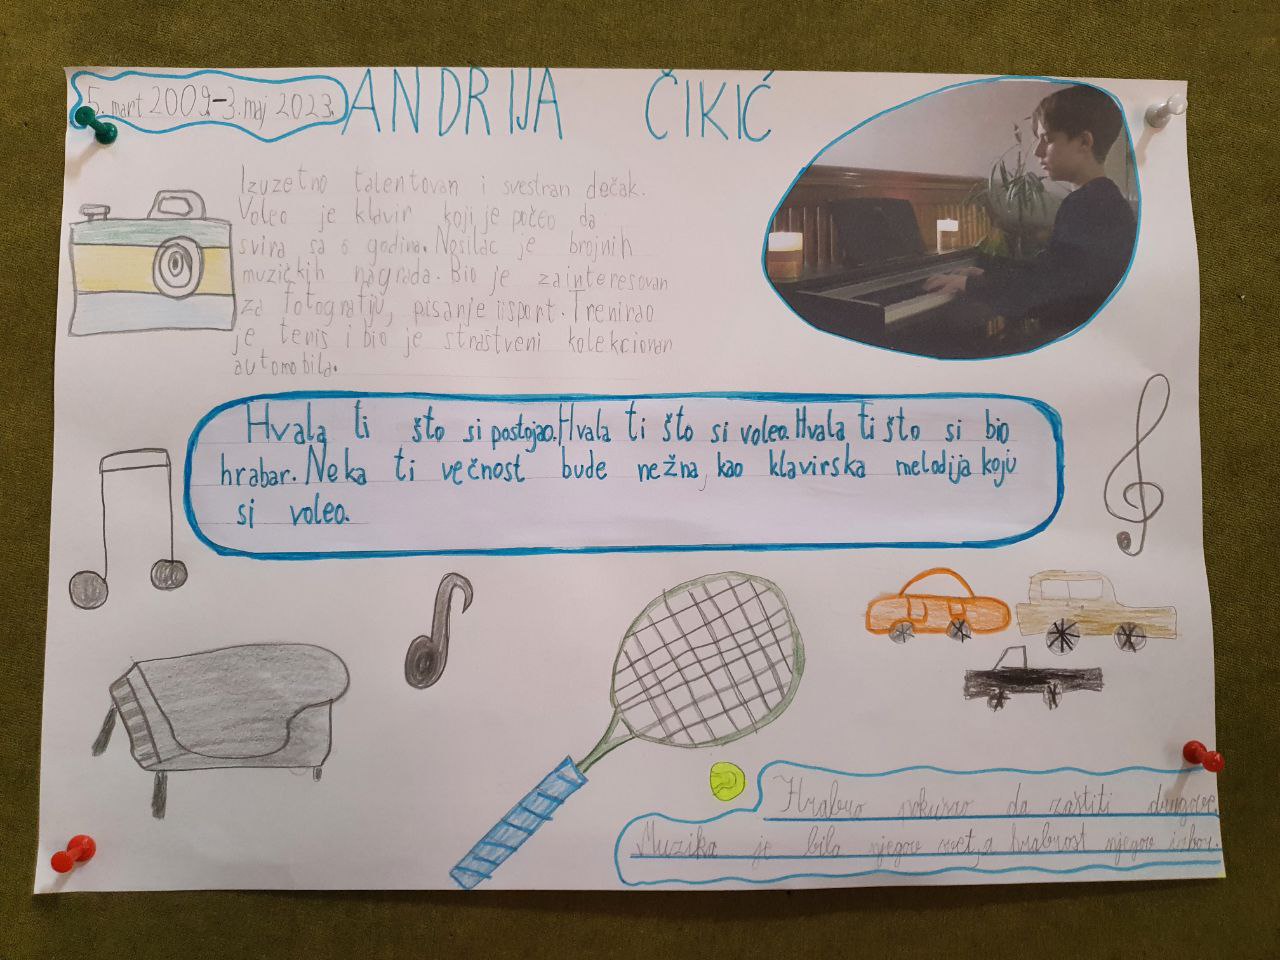 5. mart 2009.-3. maj 2023.
ANDRIJA ČIKIĆ
Izuzetno talentovan i svestran dečak.
Voleo je klavir koji je počeo da
svira sa 6 godina. Nosilac je brojnih
muzičkih nagrada. Bio je zainteresovan
za fotografiju, pisanje i sport. Trenirao
je tenis i bio je strastveni kolekcionar
automobila.
Hvala ti što si postojao. Hvala ti što si voleo. Hvala ti što si bio
hrabar. Neka ti večnost bude nežna, kao klavirska melodija koju
si voleo.
Hrabro pokušao da zaštiti drugove.
Muzika je bila njegov svet, a hrabrost njegov izbor.